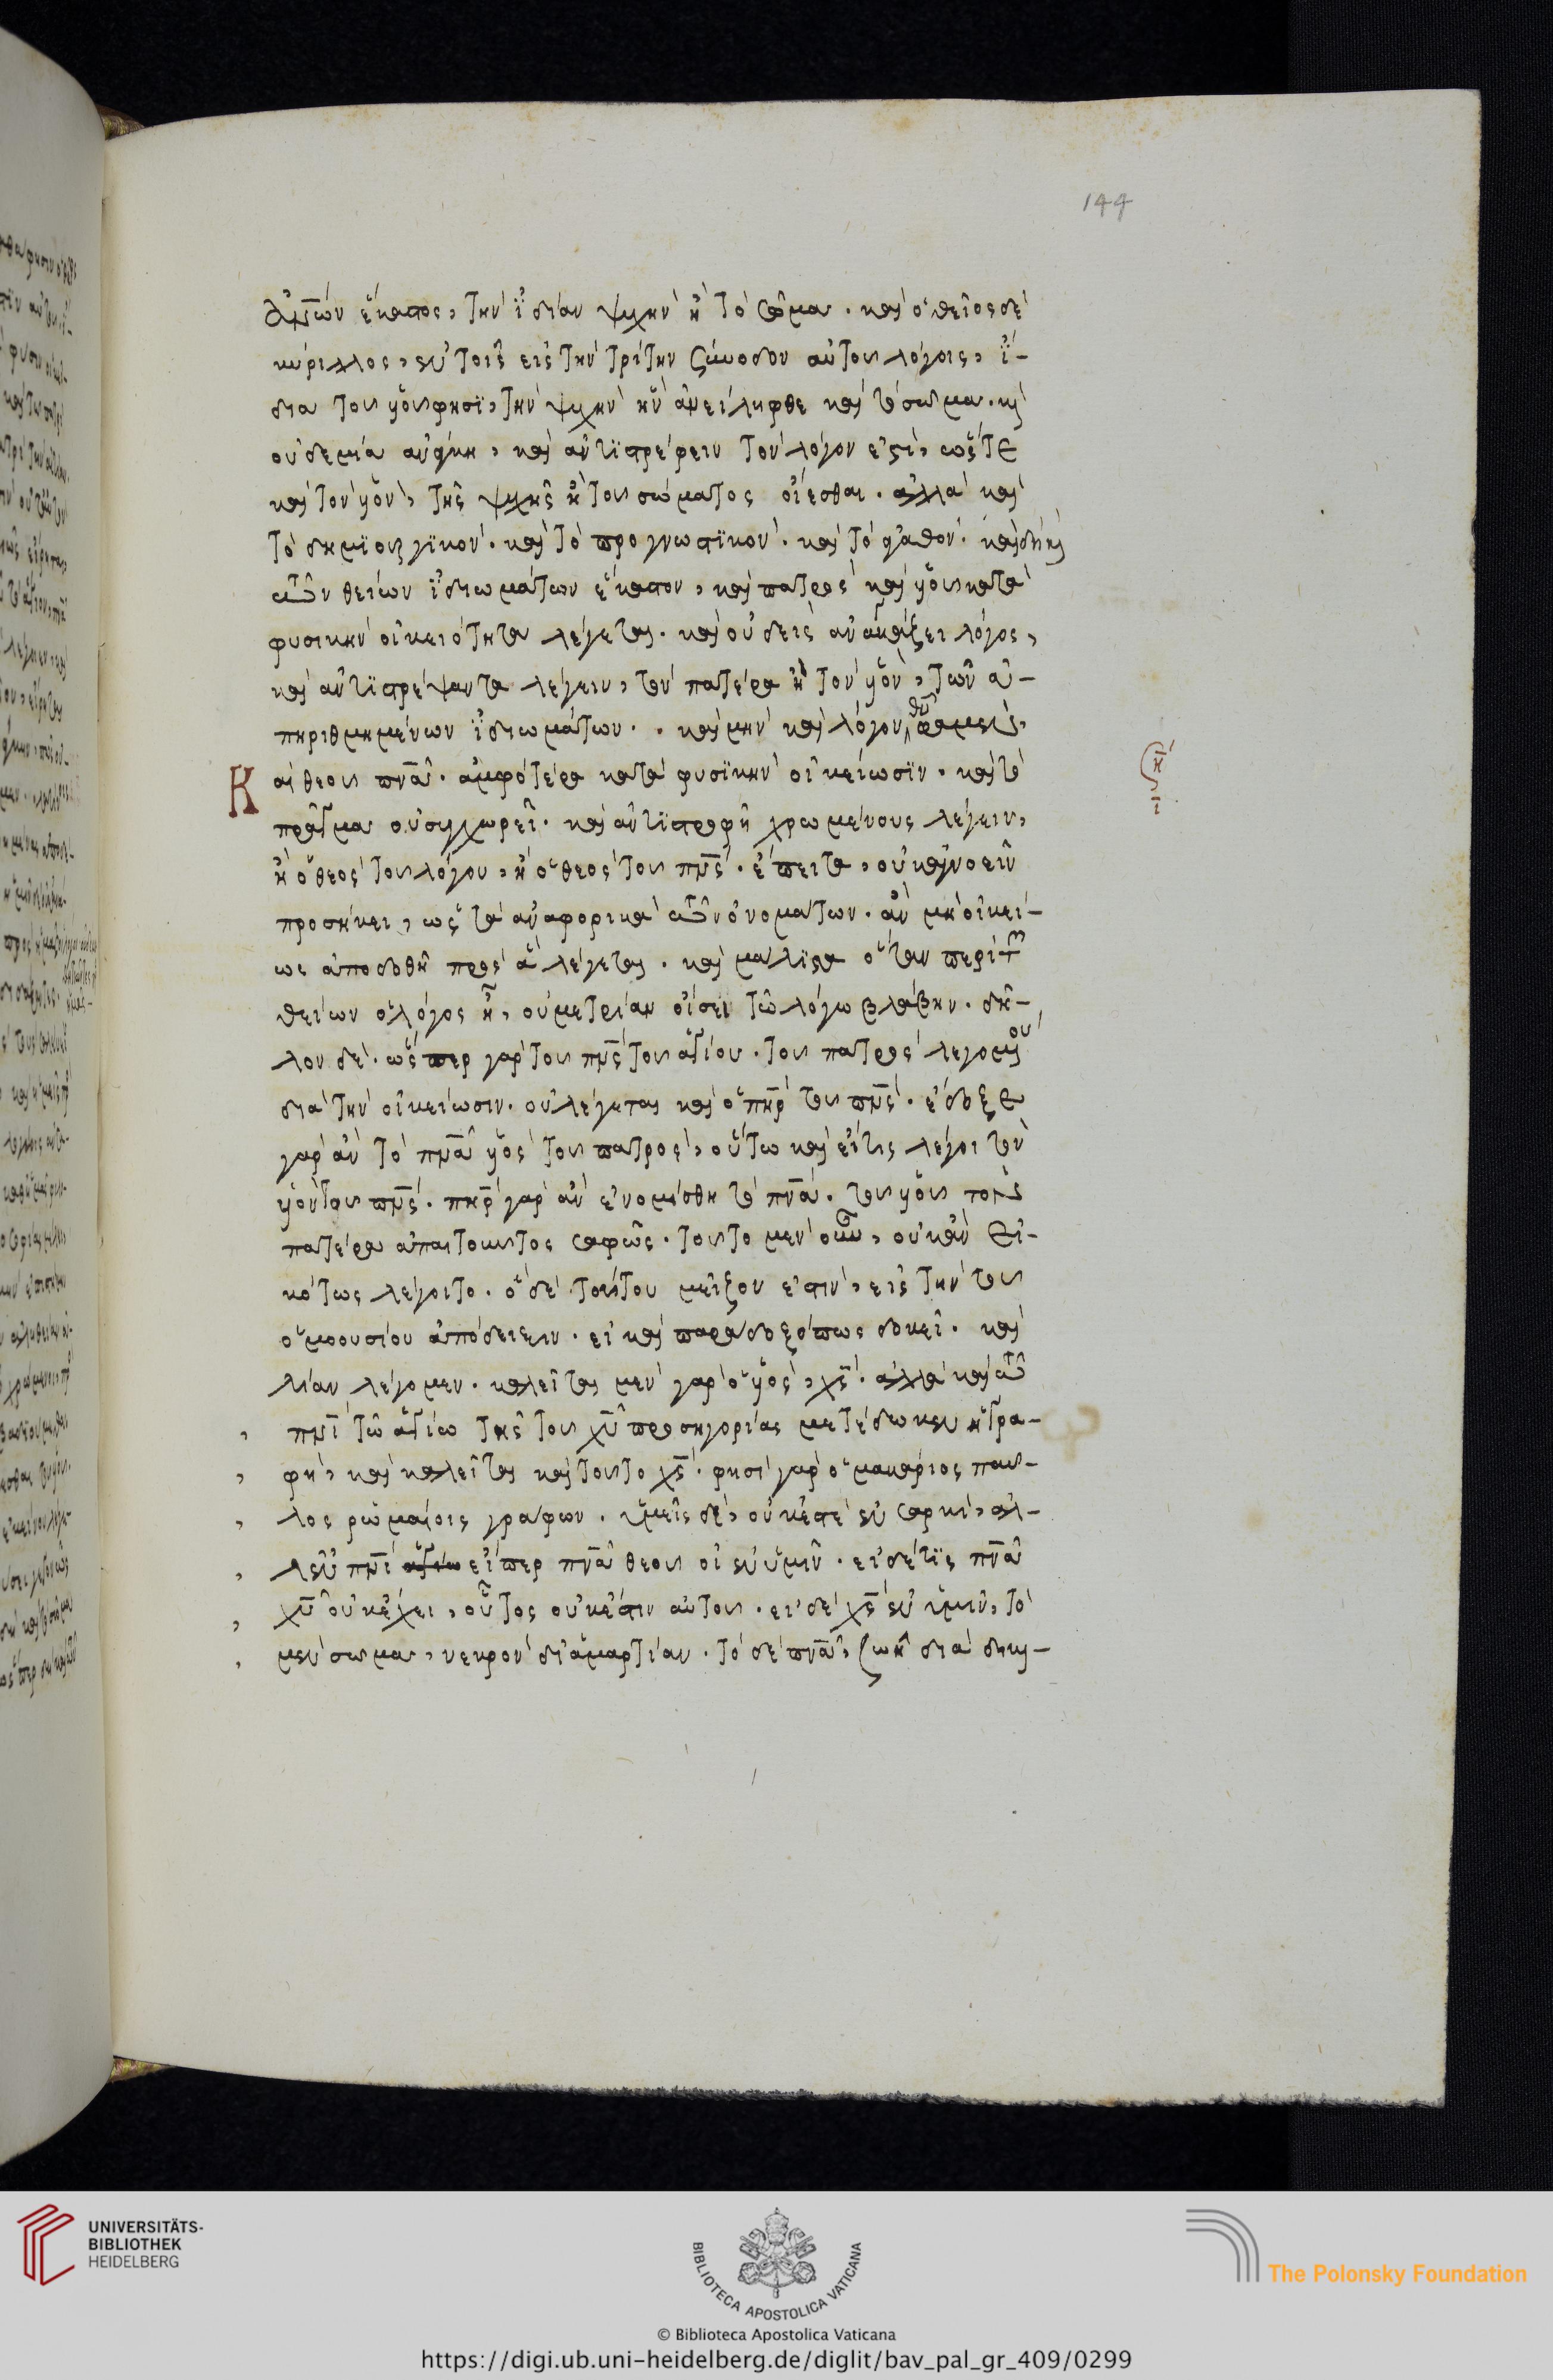 144
ἀνων ἕκαστος, τὴν ἰδίαν ψυχὴν ἢ τὸ σῶμα. καὶ ὁ θεῖος δὲ
κύριλλος, ἐν τοῖς εἰς τὴν τρίτην σύνοδον αὐτοῦ λόγοις, ἰ-
δία τοῦ υἱοῦ φησὶ, τὴν ψυχὴν ἣν ἀνείληφε καὶ τὸ σῶμα. καὶ
οὐδεμία ἀνάγκη, καὶ ἀντιστρέφειν τὸν λόγον ἐστὶ, ὥστε
καὶ τὸν υἱὸν, τῆς ψυχῆς ἢ τοῦ σώματος οἴεσθαι. ἀλλὰ καὶ
τὸ δημιουργικὸν. καὶ τὸ προγνωστικὸν. καὶ τὸ ἀγαθὸν. καὶ δὴ καὶ
τῶν θείων ἰδιωμάτων ἕκαστον, καὶ πατρὸς καὶ υἱοῦ κατὰ
φυσικὴν οἰκειότητα λέγεται. καὶ οὐδεὶς ἀναγκάζει λόγος,
καὶ ἀντιστρέψαντα λέγειν, τὸν πατέρα ἢ τὸν υἱὸν, τῶν ἀ-
πηριθμημένων ἰδιωμάτων. καὶ μὴν καὶ λόγον θῦ φαμεν,
Κ αὶ θεοῦ πνα. ἀμφότερα κατὰ φυσικὴν οἰκείωσιν. καὶ τὸ
πρᾶγμα οὐ συγχωρεῖ. καὶ ἀντιστροφῆ χρωμένους λέγειν,
ἢ ὁ θεὸς τοῦ λόγου, ἢ ὁ θεὸς τοῦ πνς. ἔπειτα, οὐκ ἀγνοεῖν
προσήκει, ὡς τὰ ἀναφορικὰ τῶν ὀνομάτων. ἂν μὴ οἰκεί-
ως ἀποδοθῆ πρὸς ἃ λέγεται. καὶ μάλιστα ὅταν περὶ τῶν
θείων ὁ λόγος ἦ, οὐ μετρίαν οἴσει τῶ λόγω βλάβην. δῆ-
λον δὲ. ὥσπερ γὰρ τοῦ πνς τοῦ ἁγίου. τοῦ πατρὸς λεγομένου
διὰ τὴν οἰκείωσιν. οὐ λέγεται καὶ ὁ πηρ τοῦ πνς. ἔδοξε
γὰρ ἂν τὸ πνα υἱὸς τοῦ πατρὸς, οὕτω καὶ εἴ τις λέγοι τὸν
υἱὸν τοῦ πνς. πηρ γὰρ ἂν ἐνομίσθη τὸ πνα. τοῦ υἱοῦ πρὸς
πατέρα ἀπαιτοῦντος σαφῶς. τοῦτο μὲν οὖν, οὐκ ἂν εἰ-
κότως λέγοιτο. ὃ δὲ τούτου μεῖζον ἐστιν, εἰς τὴν τοῦ
ὁμοουσίου ἀπόδειξιν. εἰ καὶ παραδοξόπως δοκεῖ. καὶ
λίαν λέγομεν. καλεῖται μὲν γὰρ ὁ υἱὸς, χς. ἀλλὰ καὶ τῶ
πνι τῶ ἁγίω τῆς τοῦ χυ προσηγορίας μετέδωκεν ἡ γρα-
φὴ, καὶ καλεῖται καὶ τοῦτο χς. φησὶ γὰρ ὁ μακάριος παῦ-
λος ῥωμαίοις γράφων. ὑμεῖς δὲ, οὐκ ἐστὲ ἐν σαρκὶ, ἀλ-
λ ἐν πνι ἁγίω εἴπερ πνα θεοῦ οἰ ἐν ὑμῖν. εἰ δέ τις πνα
χυ οὐκ ἔχει, οὗτος οὐκ ἔστιν αὐτοῦ. εἰ δὲ χς ἐν ὑμῖν, τὸ
μὲν σῶμα, νεκρὸν δι ἁμαρτίαν. τὸ δὲ πνα, ζωὴ διὰ δικαι-
UNIVERSITÄTS-
BIBLIOTHEK
HEIDELBERG
BIBLIOTECA APOSTOLICA VATICANA
The Polonsky Foundation
© Biblioteca Apostolica Vaticana
https://digi.ub.uni-heidelberg.de/diglit/bav_pal_gr_409/0299